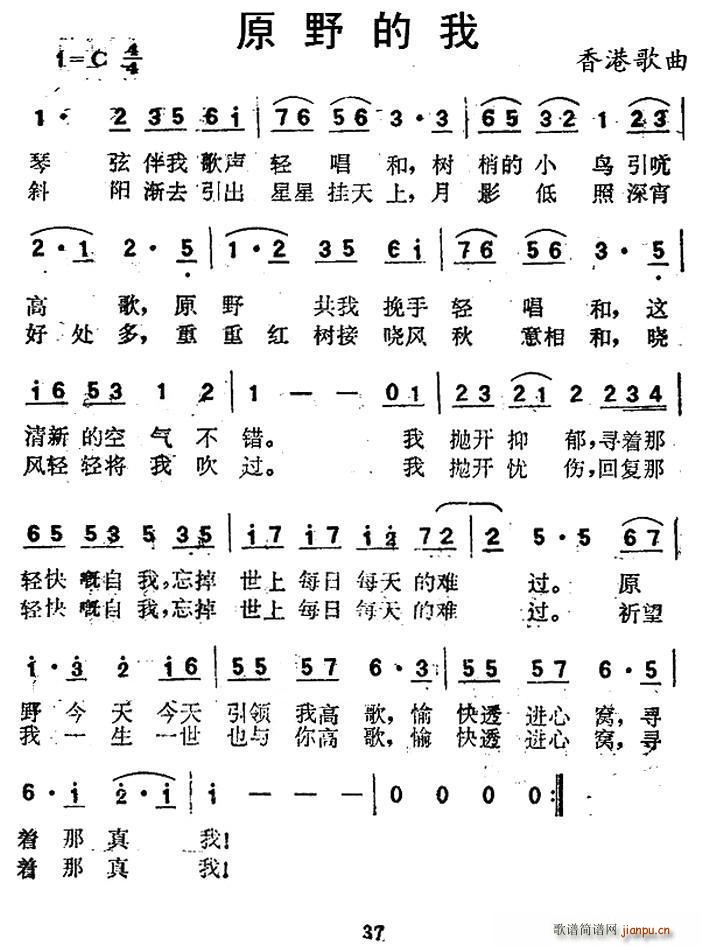 原野的我
1=C 4/4
香港歌曲
1· 2 35 6i | 76 56 3·3 | 65 32 1 23 |
琴 弦伴我歌声轻 唱 和，树 梢的小 鸟引吭
斜 阳渐去引出 星星挂天上，月 影 低 照深宵
2·1 2·5 | 1·2 35 6i | 76 56 3·5 |
高 歌，原野 共我挽手轻 唱 和，这
好处多，重重红 树接晓风秋 意相和，晓
i6 53 1 2 | 1 — — 01 | 23 21 2 234 |
清新的空气不错。 我 抛开抑 郁，寻着那
风轻轻将我吹过。 我 抛开忧 伤，回复那
65 53 5 35 | i7 i7 i2 72 | 2 5·5 67 |
轻快嘅自我，忘掉 世上每日每天的难 过。原
轻快嘅自我，忘掉 世上每日每天的难 过。祈望
i·3 2 i6 | 55 57 6·3 | 55 57 6·5 |
野今天今天 引领我高歌，愉 快透进心窝，寻
我一生一世 也与你高歌，愉 快透进心窝，寻
6·i 2·i | i — — — | 0 0 0 0 :||
着那真 我！
着那真 我！
37
歌谱简谱网
jianpu.cn